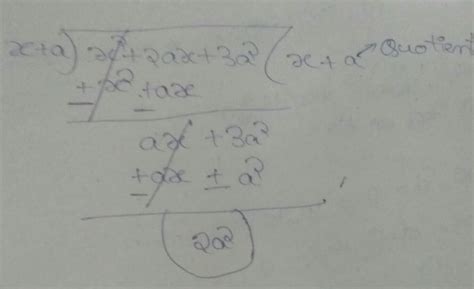 x+a) x²+2ax+3a² ( x+a → Quotient
+x² +ax
− −
ax + 3a²
+ax + a²
− −
2a²